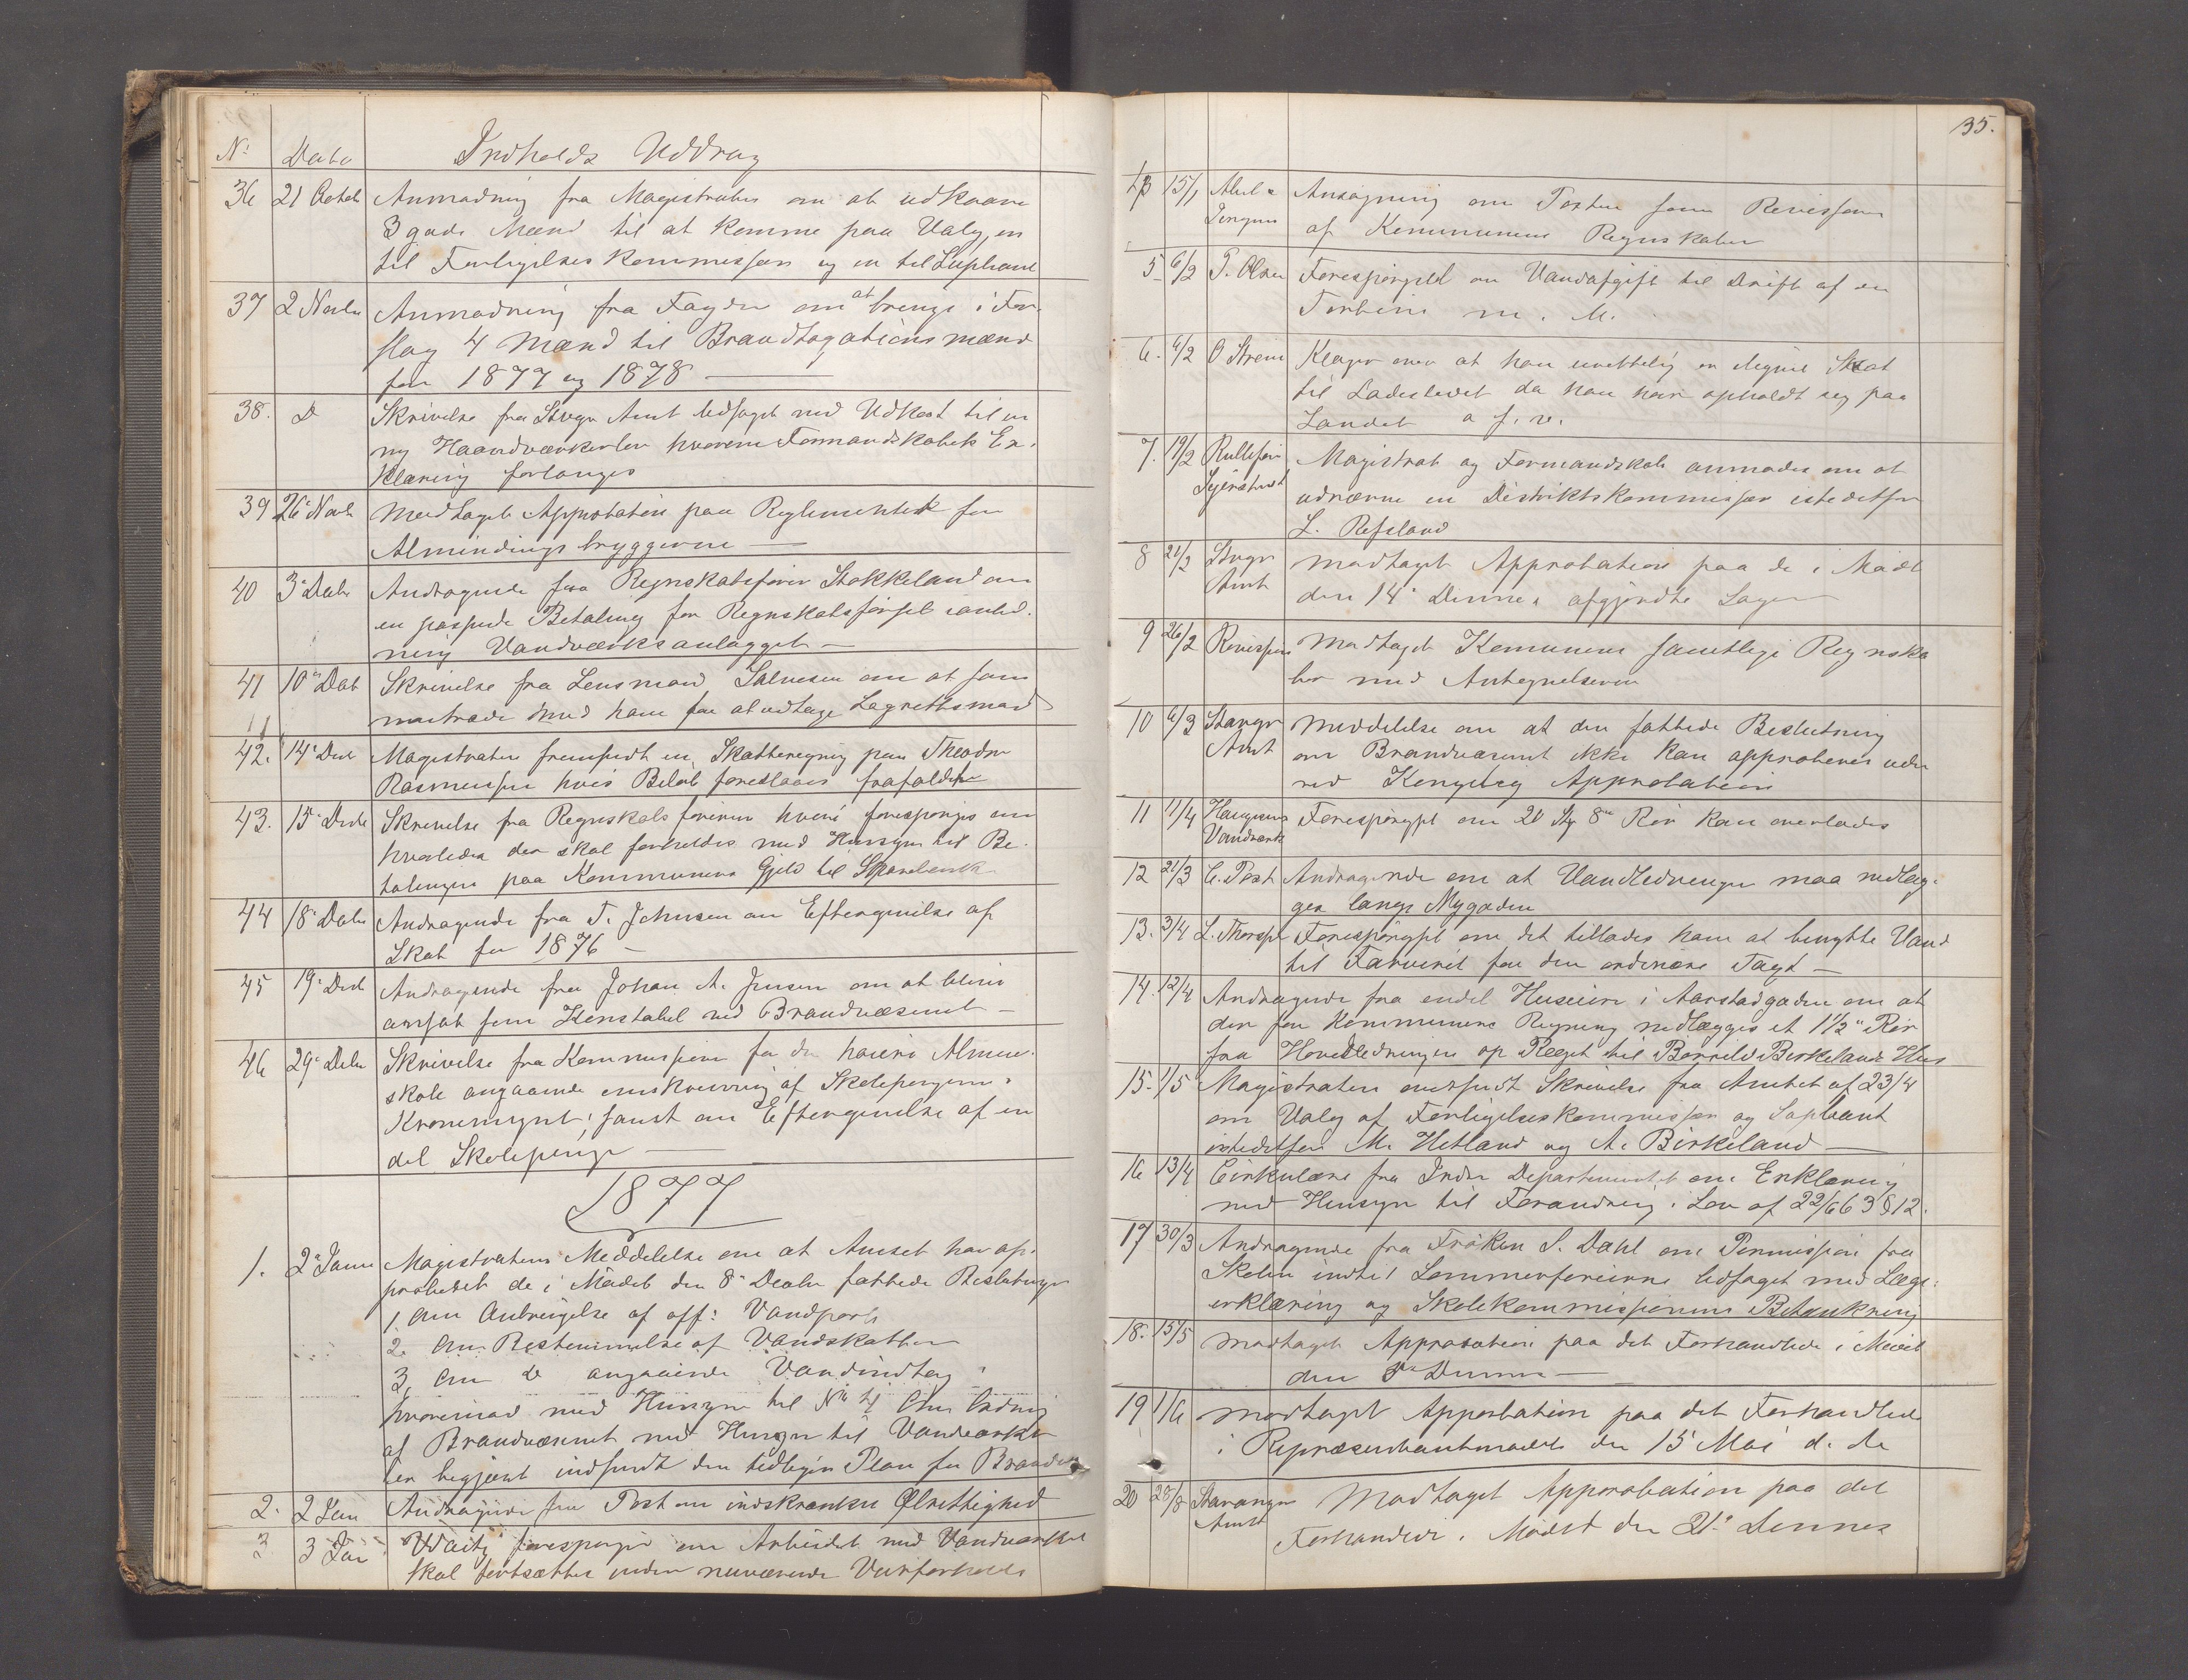 No Dato Indholds Uddrag
36 21 Octob Anmodning fra Magistraten om at udkaare
3 gode Mænd til at komme paa Valg, en
til Forligelseskommissær og en til Supleant
37 2 Novbr Anmodning fra Fogden om at bringe i For-
slag 4 Mænd til Brandtagationsmænd
for 1877 og 1878
38. D Skrivelse fra Stvgr Amt ledsaget med Udkast til en
ny Haandværkerlov hvorom Formandskabets Er-
klæring forlanges
39 26 Novbr Modtaget Approbation paa Reglementet for
Almindings bryggerne
40 3 Decbr Andragende fra Regnskabsfører Stokkeland om
en passende Betaling for Regnskabsførsel i anled-
ning Vandværksanlægget
41 10 Decb Skrivelse fra Lensmand Salvesen om at sam
mentræde med ham for at udtage Lagrettsmænd
42. 14 Decb Magistraten fremsendt en Skatteregning paa Theodor
Rasmussen hvis Beløb foreslaaes frafaldt
43. 15 Decbr Skrivelse fra Regnskabsføreren hvori forespørges om
hvorledes der skal forholdes med Hensyn til Be-
talingen paa Kommunens Gjeld til Sparebank
44 18 Decbr Andragende fra T. Johnsen om Eftergivelse af
Skat for 1876
45 19 Decb Andragende fra Johan A. Jensen om at blive
ansat som Konstabel ved Brandvæsenet
46 29 Decbr Skrivelse fra Kommissionen for den høiere Almue-
skole angaaende omskrivning af Skolepengene i
Kronemynt, samt om Eftergivelse af en
del Skolepenge
1877
1. 2 Janu Magistratens Meddelelse om at Amtet har ap-
proberet de i Mødet den 8 Decbr fattede Beslutninger
1, Om Anbringelse af off: Vandposts
2. Om Bestemmelse af Vandskatten
3, Om do angaaende Vandindtag
hvorimod med Hensyn til No 4 Om Ordning
af Brandvæsenet med Hensyn til Vandværket
har begjært indsendt den tidligere Plan for Brandv
2. 2 Jan Andragende fra Post om indskrænket Ølrettighed
3 3 Jan Waity forespørger om Arbeidet med Vandværket
skal fortsættes under nuværende Veirforholde
35.
15/1 Ansøgning om Posten som Revissor
af Kommunens Regnskaber
5 6/2 P. Olsen Forespørgsel om Vandafgift til Drift af en
Turbine m. M.
6. 6/2 O Strem Klager over at han urettelig er ilignet Skat
til Ladestedet da han har opholdt sig paa
Landet o. s. v.
7. 19/2 Magistrat og Formandskab anmodes om at
udnævne en Distriktskommissær istedetfor
L. Refsland
8 21/2 Stvgr Amt Modtaget Approbation paa de i Mødet
den 14 Dennes afgjordte Sager
9 26/2 Revissor Modtaget Kommunens samtlige Regnska
ber med Antegnelserne
10 6/3 Stavgr Amt Meddelelse om at den fattede Beslutning
om Brandvæsenet ikke kan approberes uden
ved Kongelig Approbation
11 11/4 Haugesunds Vandværk Forespørgsel om 20 Stk 8" Rør kan overlades
12 21/3 C. Post Andragende om at Vandledningen maa nedlæg-
ges langs Nygaden
13. 3/4 L. Thorsen Forespørgsel om det tillades ham at benytte Vand
til Farveriet for den ordinære Taxt
14. 12/4 Andragende fra endel Huseiere i Aarstadgaden om at
der for Kommunens Regning nedlægges et 1½" Rør
fra Hovedledningen op Bæget til Borrild Birkelands Hus
15. 1/5 Magistraten oversendt Skrivelse fra Amtet af 23/4
om Valg af Forligelseskommissær og Supleant
istedetfor M. Hetland og A. Birkeland
16 13/4 Cirkulære fra Indre Departementet om Erklæring
med Hensyn til Forandring i Lov af 22/6 63 § 12.
17 30/3 Andragende fra Frøken S. Dahl om Permission fra
Skolen indtil Sommerferierne ledsaget med Læge-
erklæring og Skolekommissionens Betænkning
18. 15/5 Modtaget Approbation paa det Forhandlede i Mødet
den 8 Dennes
19 1/6 Modtaget Approbation paa det Forhandlede
i Repræsentantmødet den 15 Mai d. Aa
20 28/8 Stavanger Amt Modtaget Approbation paa det
Forhandlede i Mødet den 21 Dennes